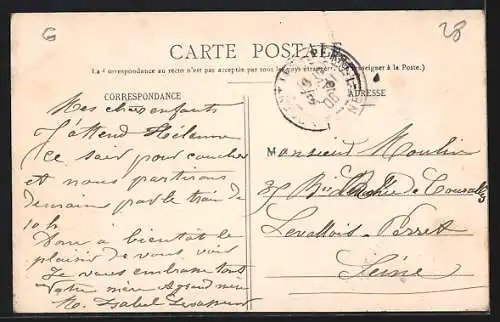 G
28
CARTE POSTALE
(La Correspondance au recto n'est pas acceptée par tous les pays étrangers. Se renseigner à la Poste.)
CORRESPONDANCE
ADRESSE
Mes chers enfants
J'attend Hélène
ce soir pour coucher
et nous partirons
demain par le train de
10 h
Donc à bientôt le
plaisir de vous voir
Je vous embrasse tous
Votre mère & grand mère
Isabel
Monsieur Moulin
35 de Courcelles
Levallois-Perret
Seine